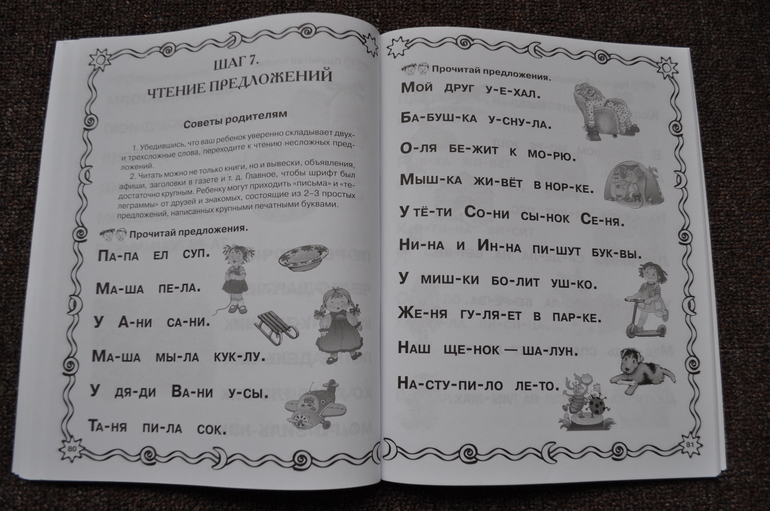 ШАГ 7.
ЧТЕНИЕ ПРЕДЛОЖЕНИЙ
Советы родителям
1. Убедившись, что ваш ребенок уверенно складывает двух-
и трехсложные слова, переходите к чтению несложных пред-
ложений.
2. Читать можно не только книги, но и вывески, объявления,
афиши, заголовки в газете и т. д. Главное, чтобы шрифт был
достаточно крупным. Ребенку могут приходить «письма» и «те-
леграммы» от друзей и знакомых, состоящие из 2–3 простых
предложений, написанных крупными печатными буквами.
Прочитай предложения.
ПА-ПА ЕЛ СУП.
МА-ША ПЕ-ЛА.
У А-НИ СА-НИ.
МА-ША МЫ-ЛА КУК-ЛУ.
У ДЯ-ДИ ВА-НИ У-СЫ.
ТА-НЯ ПИ-ЛА СОК.
80
Прочитай предложения.
МОЙ ДРУГ У-Е-ХАЛ.
БА-БУШ-КА У-СНУ-ЛА.
О-ЛЯ БЕ-ЖИТ К МО-РЮ.
МЫШ-КА ЖИ-ВЁТ В НОР-КЕ.
У ТЁ-ТИ СО-НИ СЫ-НОК СЕ-НЯ.
НИ-НА И ИН-НА ПИ-ШУТ БУК-ВЫ.
У МИШ-КИ БО-ЛИТ УШ-КО.
ЖЕ-НЯ ГУ-ЛЯ-ЕТ В ПАР-КЕ.
НАШ ЩЕ-НОК — ША-ЛУН.
НА-СТУ-ПИ-ЛО ЛЕ-ТО.
81